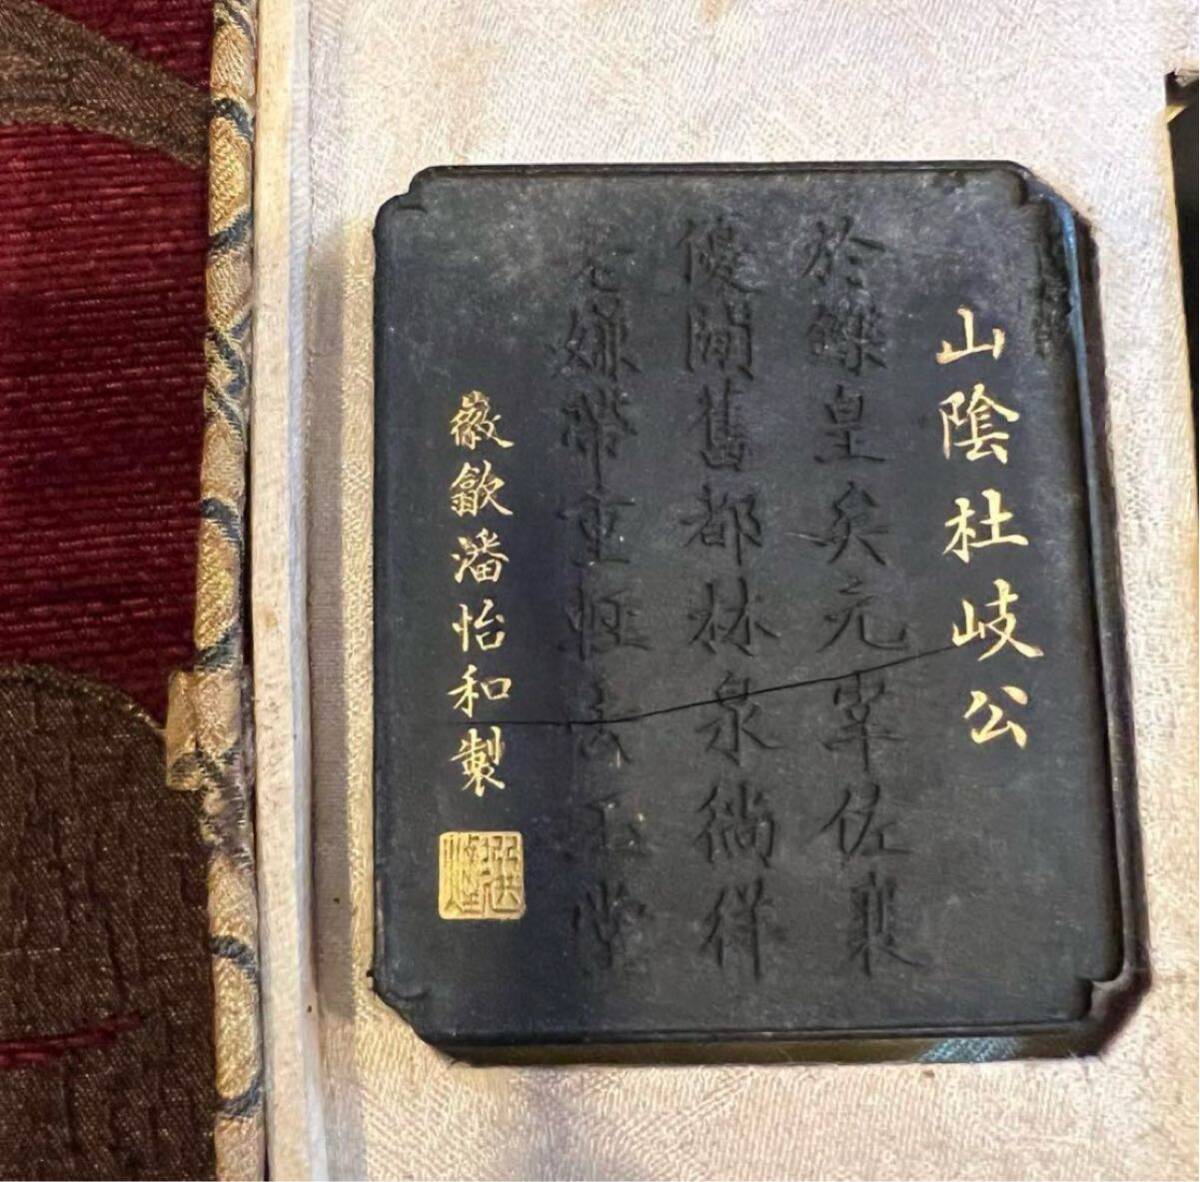 山陰杜岐公
於鑠皇矣元宰佐襄
優閒舊都林泉徜徉
嫌帶重輕玉堂
徽歙潘怡和製
選煙